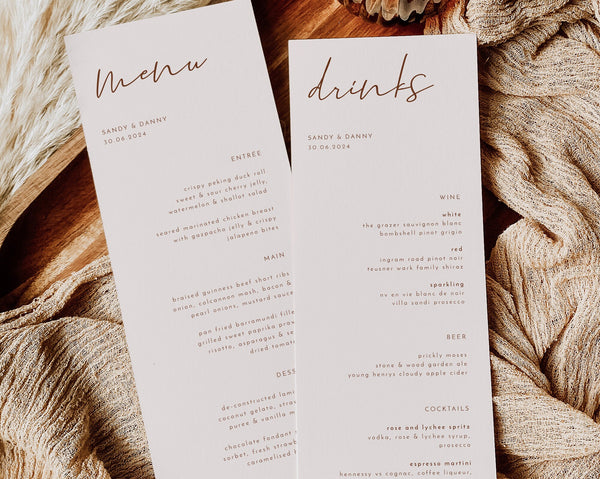 menu
SANDY & DANNY
30.06.2024
ENTREE
crispy peking duck roll,
sweet & sour cherry jelly,
watermelon & shallot salad
seared marinated chicken breast
with gazpacho jelly & crispy
jalapeno bites
MAIN
braised guinness beef short ribs
onion, colcannon mash, bacon &
pearl onions, mustard sauce
pan fried barramundi fillet
grilled sweet paprika prawn
risotto, asparagus & se
dried tomat
DESS
de-constructed lam
coconut gelato, straw
puree & vanilla m
chocolate fondant
sorbet, fresh strawb
caramelised b
drinks
SANDY & DANNY
30.06.2024
WINE
white
the grazer sauvignon blanc
bombshell pinot grigio
red
ingram road pinot noir
teusner wark family shiraz
sparkling
nv en vie blanc de noir
villa sandi prosecco
BEER
prickly moses
stone & wood garden ale
young henrys cloudy apple cider
COCKTAILS
rose and lychee spritz
vodka, rose & lychee syrup,
prosecco
espresso martini
hennessy vs cognac, coffee liqueur,